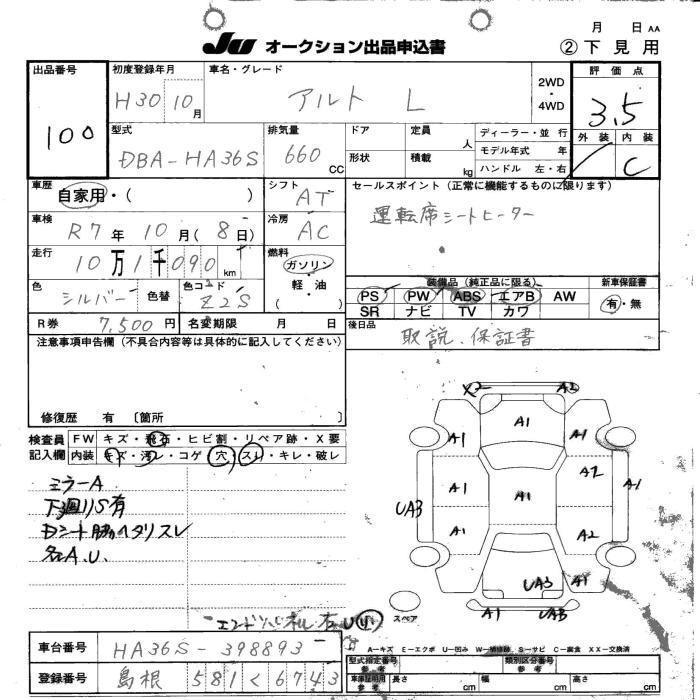 月 日 AA
JU オークション出品申込書 ②下見用
出品番号 初度登録年月 車名・グレード 2WD・4WD 評価点
100 H30 10月 アルト L 3.5
型式 排気量 ドア 定員 人 ディーラー・並行 外装 内装
DBA-HA36S 660 CC 形状 積載 kg モデル年式 年 C
ハンドル 左・右
車歴 シフト セールスポイント(正常に機能するものに限ります)
自家用・( ) AT 運転席シートヒーター
車検 冷房
R7年10月(8日) AC
走行 燃料
10万1千090km ガソリン・軽・油( )
装備品(純正品に限る) 新車保証書
色 色コード PS PW ABS エアB AW 有・無
シルバー 色替 Z2S SR ナビ TV カワ
R券 7,500円 名変期限 月 日 後日品
取説、保証書
注意事項申告欄(不具合内容等は具体的に記入してください)
修復歴 有 〔箇所
検査員 FW キズ・飛石・ヒビ割・リペア跡・X要
記入欄 内装 キズ・汚レ・コゲ・穴・スレ・キレ・破レ
ミラーA
下廻りS有
Dシート脇ヘタリスレ
各A.U.
X2 A2
A1
A1 A1
A2
A1 A1 A1
UA3
A1 A2
UA3 A1
A1 UA3
スペア
車台番号 HA36S-398893
A-キズ E-エクボ U-凹み W-補修跡 S-サビ C-腐食 XX-交換済
型式指定番号 参考 類別区分番号 参考
登録番号 島根 581く6743
車庫証明用 参考 長さ cm 幅 cm 高さ cm